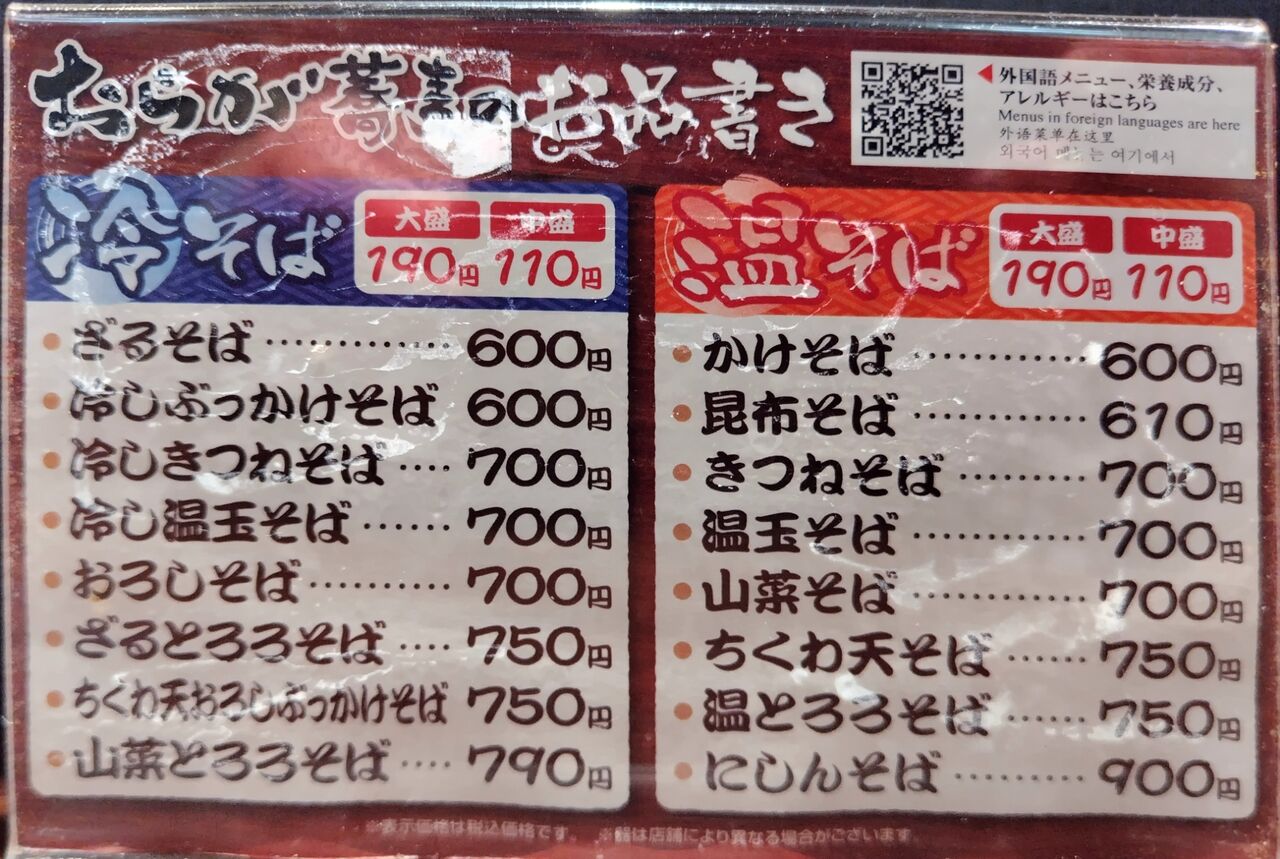 おらが蕎麦のお品書き
外国語メニュー、栄養成分、
アレルギーはこちら
Menus in foreign languages are here
外语菜单在这里
외국어 메뉴는 여기에서
冷そば
大盛 190円
中盛 110円
ざるそば 600円
冷しぶっかけそば 600円
冷しきつねそば 700円
冷し温玉そば 700円
おろしそば 700円
ざるとろろそば 750円
ちくわ天おろしぶっかけそば 750円
山菜とろろそば 790円
温そば
大盛 190円
中盛 110円
かけそば 600円
昆布そば 610円
きつねそば 700円
温玉そば 700円
山菜そば 700円
ちくわ天そば 750円
温とろろそば 750円
にしんそば 900円
※表示価格は税込価格です。 ※器は店舗により異なる場合がございます。